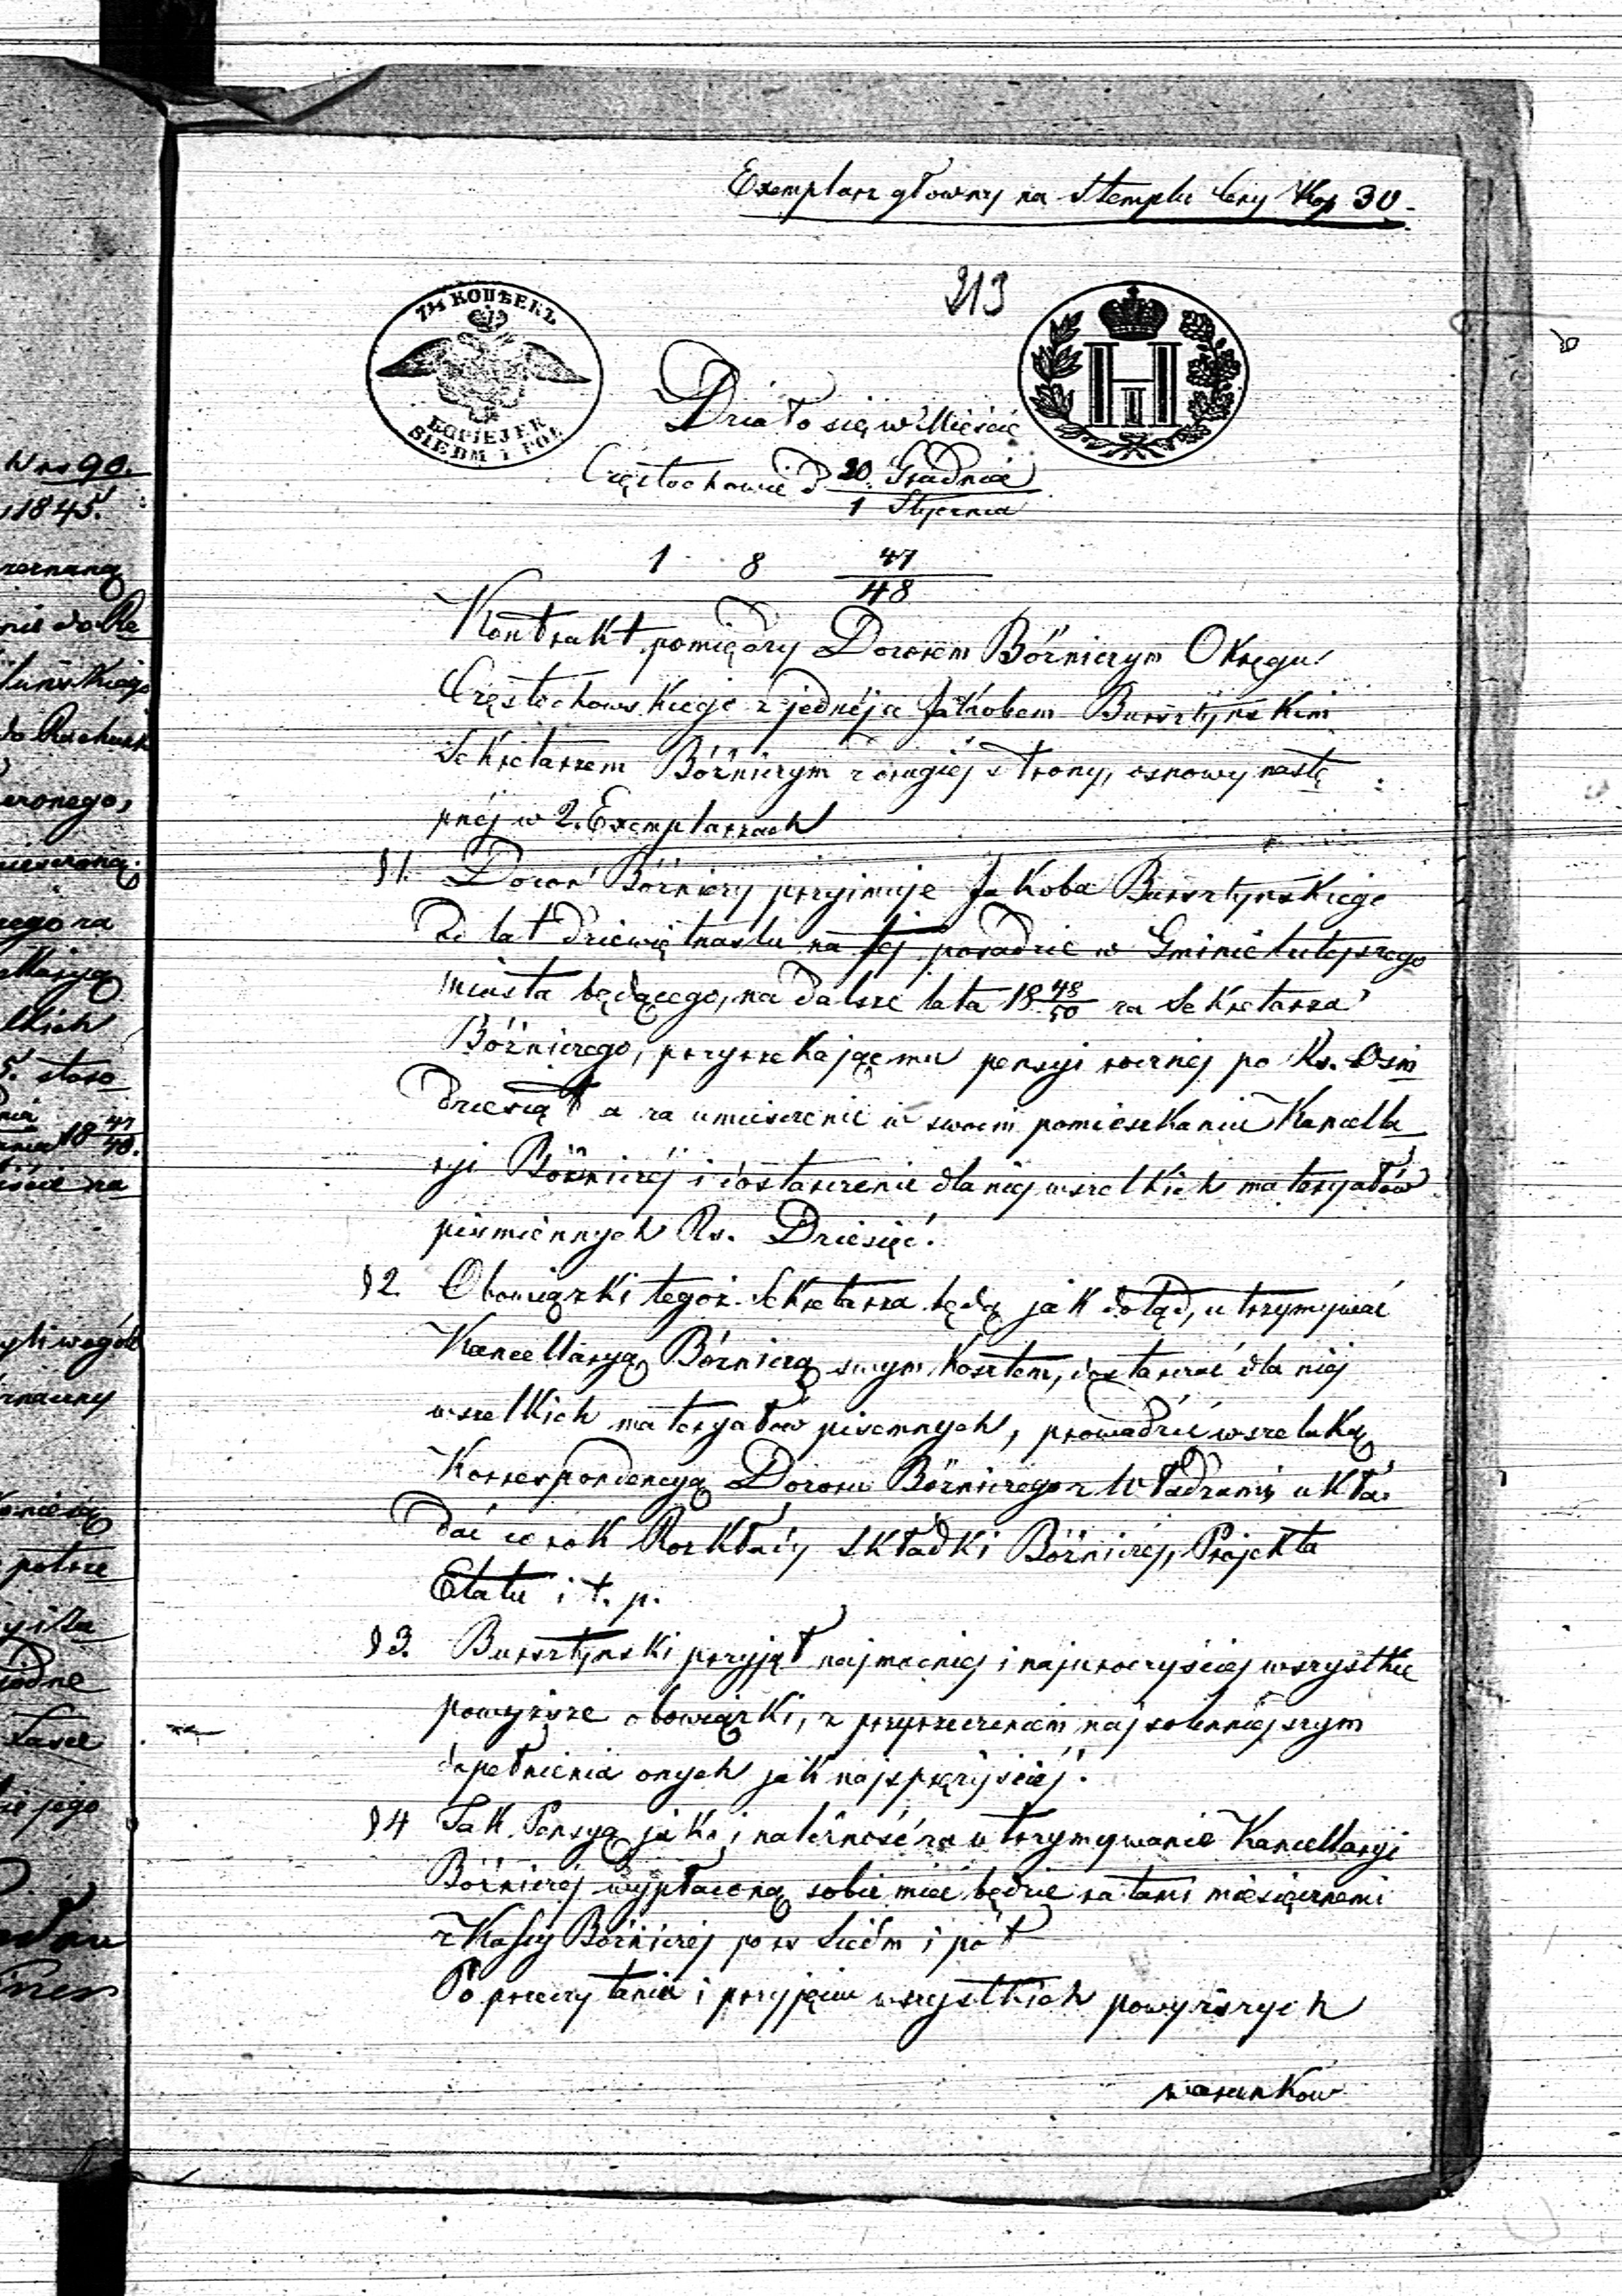 Exemplarz głowny na Stemplu Ceny Kop 30.
213
7½ КОПѢЕКЪ
KOPIEJEK
SIEDM I PÓŁ
Działo się w Mieście
Częstochowie d 20. Grudnia
1 Stycznia
1 8 47
48
Kontrakt pomiędzy Dozorem Bóżniczym Okręgu
Częstochowskiego z jednéj a Jakobem Bursztyńskim
Sekretarzem Bóżniczym z drugiej strony, osnowy nastę
pnéj w 2. Exemplarzach
§1. Dozór Bóżniczy przyimuje Jakoba Bursztyńskiego
od lat dziewiętnastu na téj posadzie w Gminie tutejszego
miasta będącego, na dalsze lata 18 48/50 za Sekretarza
Bóżniczego, przyrzekając mu pensyi rocznéj po Rs. Ośm
dziesiąt a za umieszczenie w swoim pomieszkaniu Kancella
ryi Bóżniczéj i dostarczenie dla niej wszelkich materyałów
piśmiennych Rs. Dziesięć.
§2. Obowiązki tegoż Sekretarza będą jak dotąd, utrzymywać
Kancellaryą Bóżniczą swym Kosztem, dostarczać dla niéj
wszelkich materyałów pisemnych, prowadzić wszelaką
Korrespondencyą Dozoru Bóżniczego z Władzami, ukła
dać co rok Rozkłady Składki Bóżniczéj, Projekta
Etatu i t. p.
§3. Bursztyński przyjął najmocniej i najuroczyściej wszystkie
powyższe obowiązki, z przyrzeczeniem najsolenniejszym
dopełnienia onych jak najsprężyściéj.
§4 Tak Pensyą jak i należność za utrzymywanie Kancellaryi
Bóżniczéj wypłaconą sobie mieć będzie ratami miesięcznemi
z Kassy Bóżniczej po rs siedm i pół
Po przeczytaniu i przyjęciu wszystkich powyższych
warunków